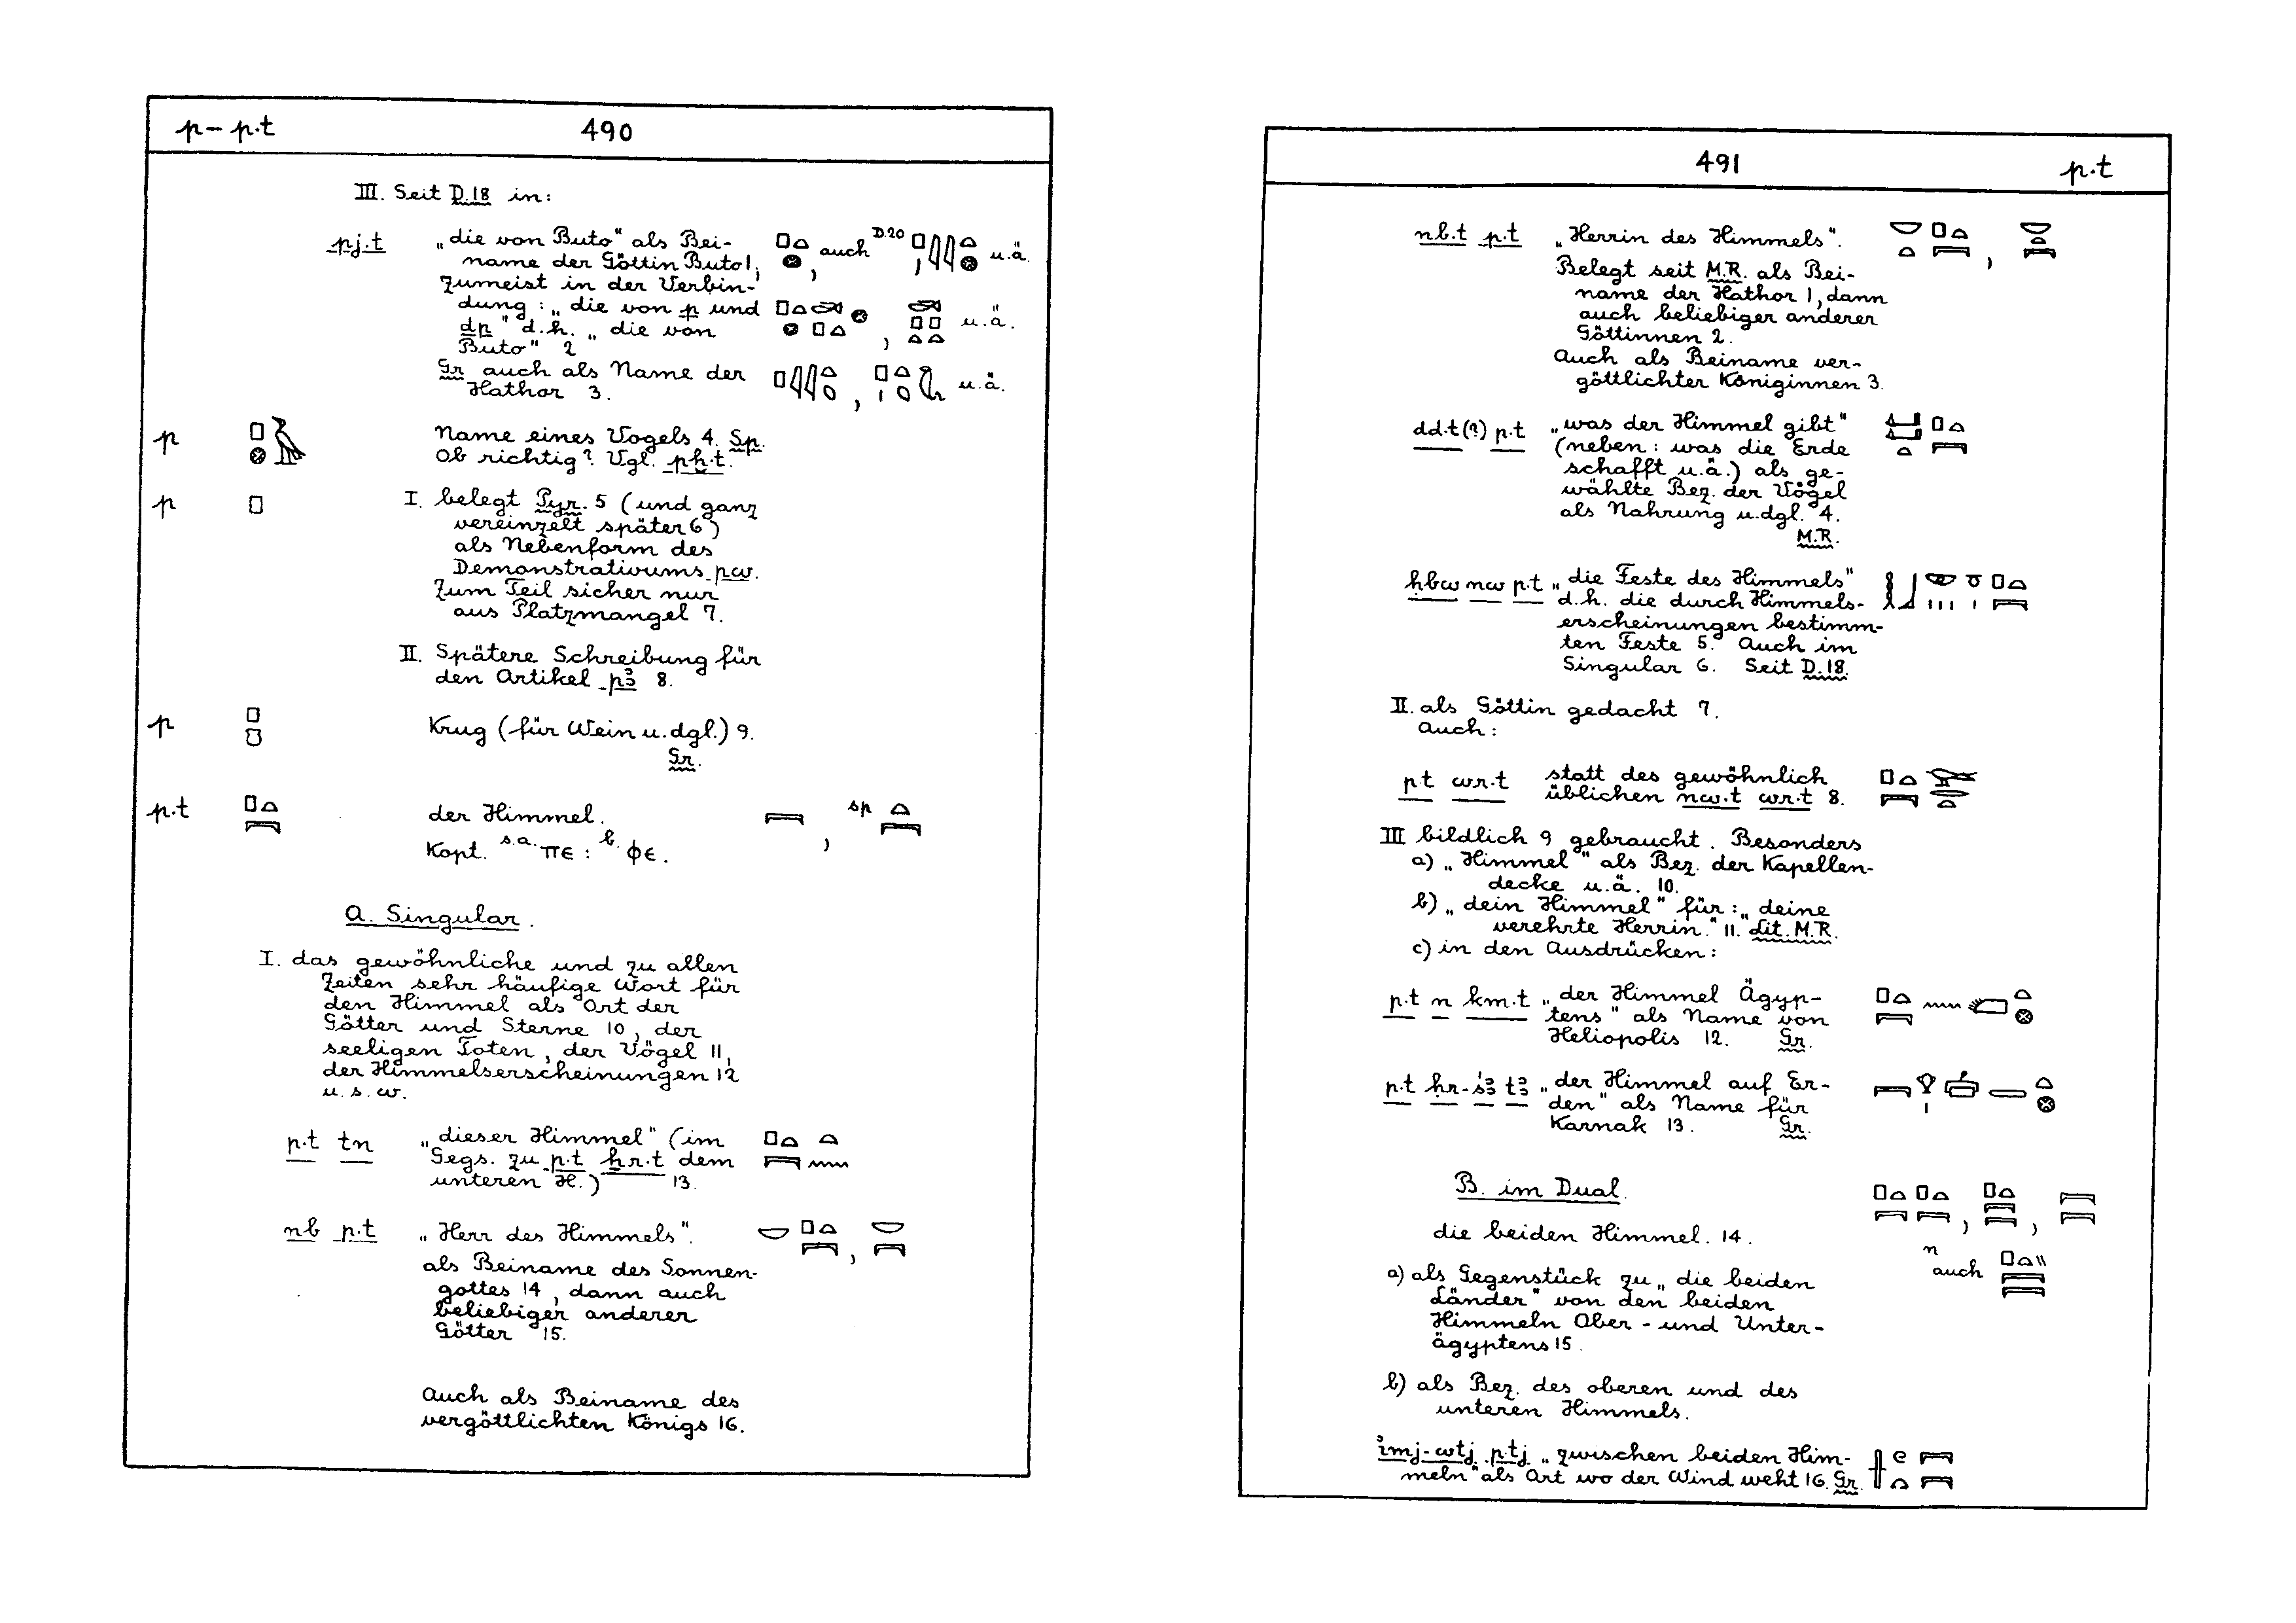 p – p.t
490
III. Seit D.18 in:
pj.t „die von Buto“ als Bei-
name der Göttin Buto 1,
auch D.20 u.ä.
Zumeist in der Verbin-
dung: „die von p und
dp“ d.h. „die von
u.ä.
Buto“ 2
Gr auch als Name der
Hathor 3.
u.ä.
p Name eines Vogels 4. Sp.
Ob richtig? Vgl. pḫ.t.
p I. belegt Pyr. 5 (und ganz
vereinzelt später 6)
als Nebenform des
Demonstrativums pw.
Zum Teil sicher nur
aus Platzmangel 7.
II. Spätere Schreibung für
den Artikel pꜣ 8.
p Krug (für Wein u.dgl.) 9.
Gr.
p.t der Himmel. , sp
Kopt. s.a. ⲡⲉ : b. ⲫⲉ.
A. Singular.
I. das gewöhnliche und zu allen
Zeiten sehr häufige Wort für
den Himmel als Ort der
Götter und Sterne 10, der
seeligen Toten, der Vögel 11,
der Himmelserscheinungen 12
u.s.w.
p.t tn „dieser Himmel“ (im
Gegs. zu p.t ẖr.t dem
unteren H.) 13.
nb p.t „Herr des Himmels“.
als Beiname des Sonnen-
gottes 14, dann auch
beliebiger anderer
Götter 15.
Auch als Beiname des
vergöttlichten Königs 16.
491
p.t
nb.t p.t „Herrin des Himmels“.
Belegt seit M.R. als Bei-
name der Hathor 1, dann
auch beliebiger anderer
Göttinnen 2.
Auch als Beiname ver-
göttlichter Königinnen 3.
dd.t (?) p.t „was der Himmel gibt“
(neben: was die Erde
schafft u.ä.) als ge-
wählte Bez. der Vögel
als Nahrung u.dgl. 4.
M.R.
ḥbw nw p.t „die Feste des Himmels“
d.h. die durch Himmels-
erscheinungen bestimm-
ten Feste 5. Auch im
Singular 6. Seit D.18.
II. als Göttin gedacht 7.
Auch:
p.t wr.t statt des gewöhnlich
üblichen nw.t wr.t 8.
III bildlich 9 gebraucht. Besonders
a) „Himmel“ als Bez. der Kapellen-
decke u.ä. 10.
b) „dein Himmel“ für: „deine
verehrte Herrin.“ 11. Lit. M.R.
c) in den Ausdrücken:
p.t n km.t „der Himmel Ägyp-
tens“ als Name von
Heliopolis 12. Gr.
p.t ḥr-sꜣ tꜣ „der Himmel auf Er-
den“ als Name für
Karnak 13. Gr.
B. im Dual.
die beiden Himmel. 14.
n auch
a) als Gegenstück zu „die beiden
Länder“ von den beiden
Himmeln Ober- und Unter-
ägyptens 15.
b) als Bez. des oberen und des
unteren Himmels.
imj-wtj p.tj „zwischen beiden Him-
meln“ als Ort wo der Wind weht 16. Gr.